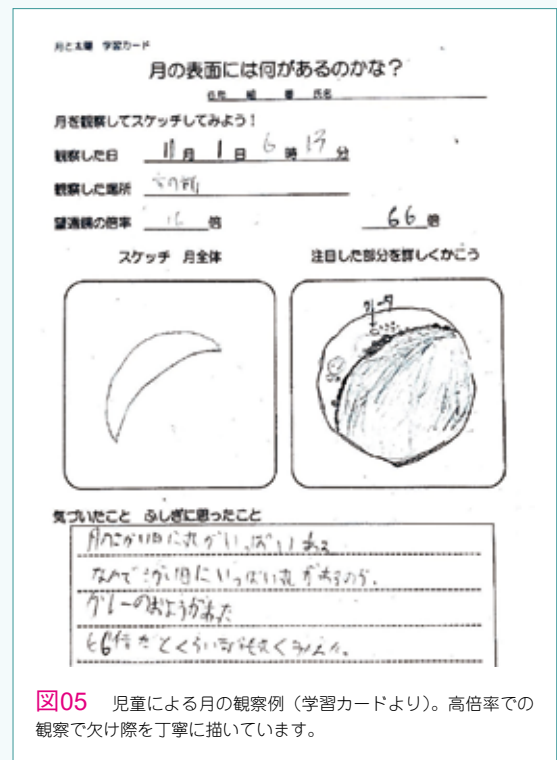 月と太陽 学習カード
月の表面には何があるのかな？
6年 組 番 氏名
月を観察してスケッチしてみよう！
観察した日 11月1日6時13分
観察した場所
望遠鏡の倍率 16倍 66倍
スケッチ 月全体 注目した部分を詳しくかこう
クレータ
気づいたこと ふしぎに思ったこと
丸がいっぱいある
なんで いっぱい丸があるのか。
グレーのもようがあった
66倍だと
図05 児童による月の観察例（学習カードより）。高倍率での
観察で欠け際を丁寧に描いています。